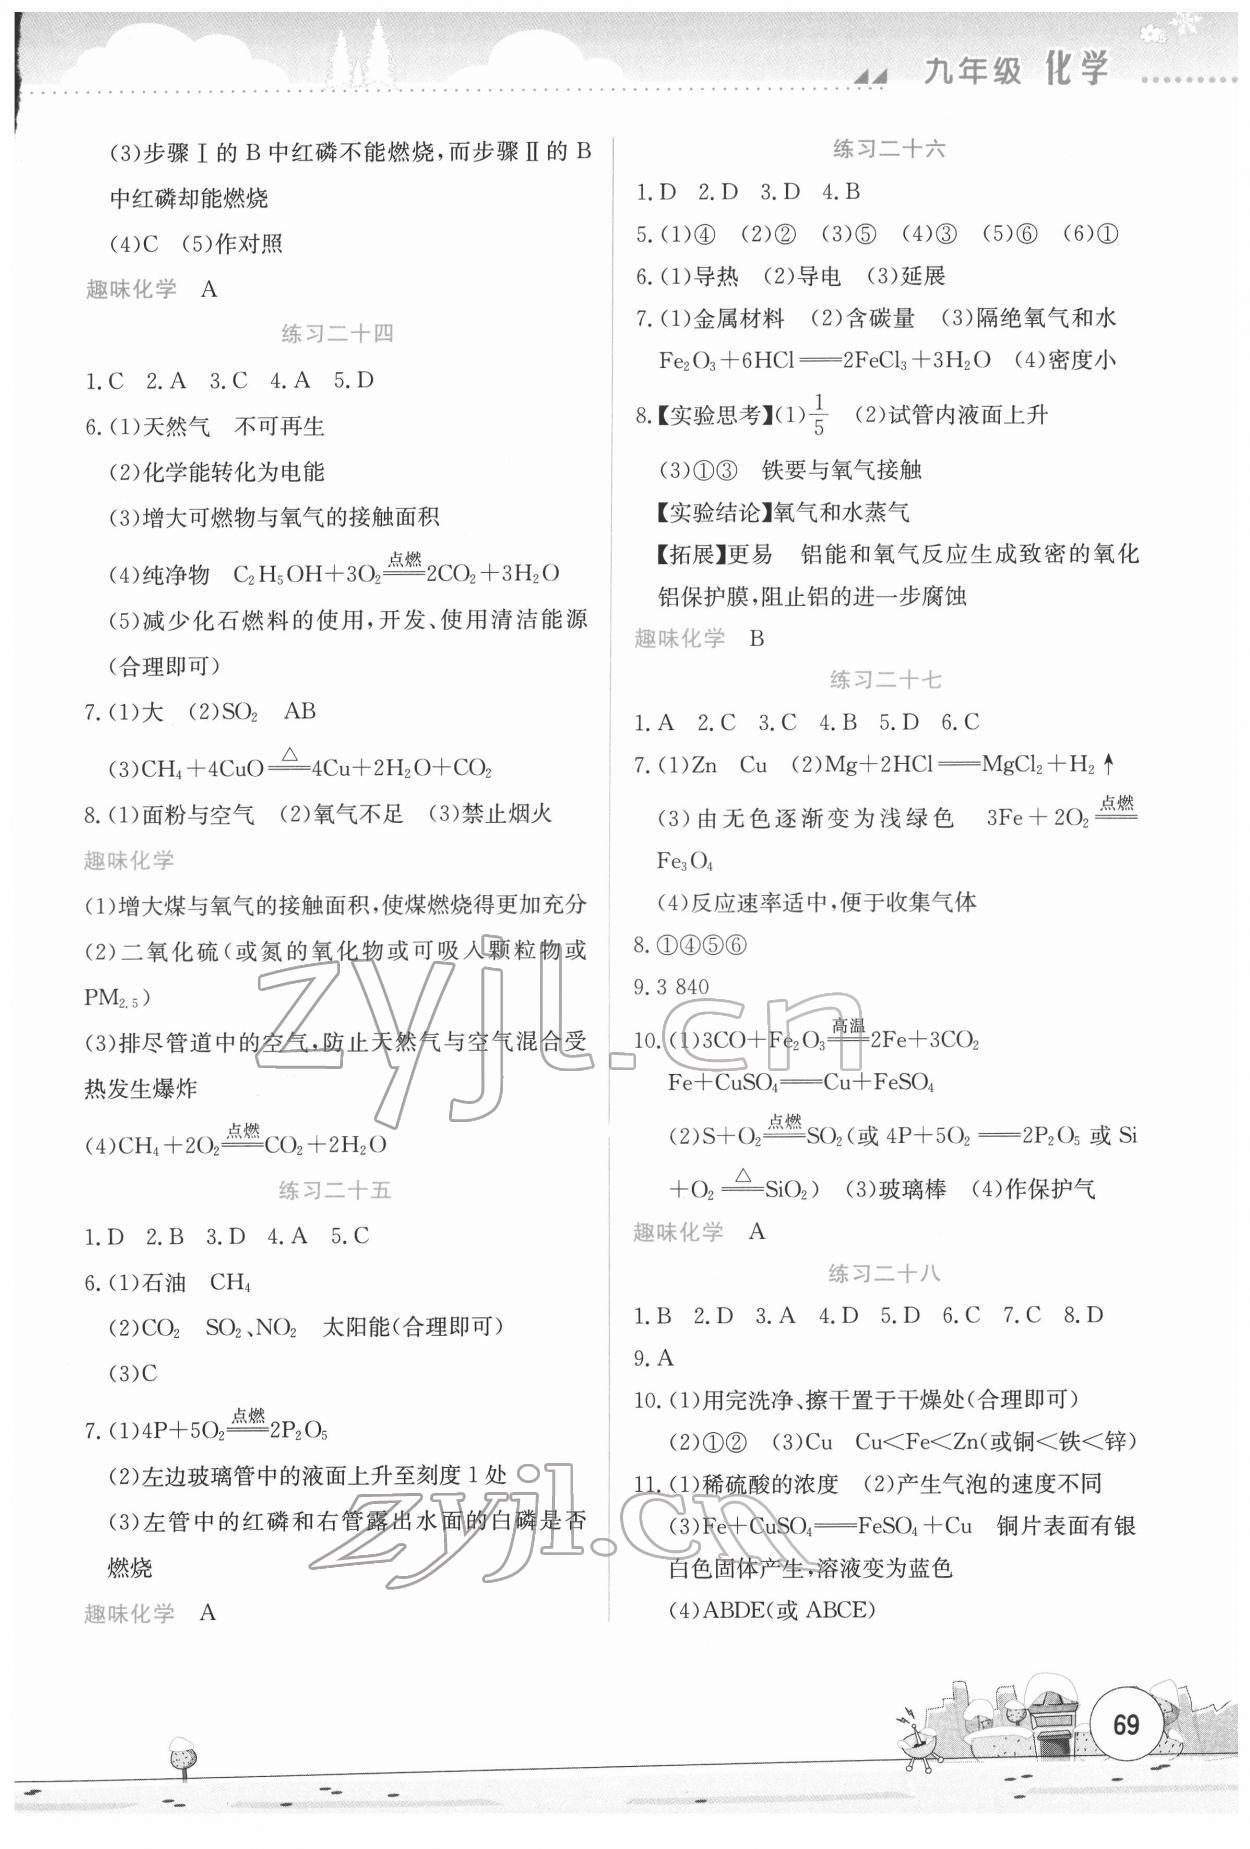 九年级 化学
(3)步骤Ⅰ的B中红磷不能燃烧,而步骤Ⅱ的B
中红磷却能燃烧
(4)C (5)作对照
趣味化学 A
练习二十四
1.C 2.A 3.C 4.A 5.D
6.(1)天然气 不可再生
(2)化学能转化为电能
(3)增大可燃物与氧气的接触面积
(4)纯净物 C₂H₅OH+3O₂ 点燃══ 2CO₂+3H₂O
(5)减少化石燃料的使用,开发、使用清洁能源
(合理即可)
7.(1)大 (2)SO₂ AB
(3)CH₄+4CuO △══ 4Cu+2H₂O+CO₂
8.(1)面粉与空气 (2)氧气不足 (3)禁止烟火
趣味化学
(1)增大煤与氧气的接触面积,使煤燃烧得更加充分
(2)二氧化硫(或氮的氧化物或可吸入颗粒物或
PM₂.₅)
(3)排尽管道中的空气,防止天然气与空气混合受
热发生爆炸
(4)CH₄+2O₂ 点燃══ CO₂+2H₂O
练习二十五
1.D 2.B 3.D 4.A 5.C
6.(1)石油 CH₄
(2)CO₂ SO₂、NO₂ 太阳能(合理即可)
(3)C
7.(1)4P+5O₂ 点燃══ 2P₂O₅
(2)左边玻璃管中的液面上升至刻度1处
(3)左管中的红磷和右管露出水面的白磷是否
燃烧
趣味化学 A
练习二十六
1.D 2.D 3.D 4.B
5.(1)④ (2)② (3)⑤ (4)③ (5)⑥ (6)①
6.(1)导热 (2)导电 (3)延展
7.(1)金属材料 (2)含碳量 (3)隔绝氧气和水
Fe₂O₃+6HCl══2FeCl₃+3H₂O (4)密度小
8.【实验思考】(1)1/5 (2)试管内液面上升
(3)①③ 铁要与氧气接触
【实验结论】氧气和水蒸气
【拓展】更易 铝能和氧气反应生成致密的氧化
铝保护膜,阻止铝的进一步腐蚀
趣味化学 B
练习二十七
1.A 2.C 3.C 4.B 5.D 6.C
7.(1)Zn Cu (2)Mg+2HCl══MgCl₂+H₂↑
(3)由无色逐渐变为浅绿色 3Fe+2O₂ 点燃══
Fe₃O₄
(4)反应速率适中,便于收集气体
8.①④⑤⑥
9.3 840
10.(1)3CO+Fe₂O₃ 高温══ 2Fe+3CO₂
Fe+CuSO₄══Cu+FeSO₄
(2)S+O₂ 点燃══ SO₂(或 4P+5O₂══2P₂O₅ 或 Si
+O₂ △══ SiO₂) (3)玻璃棒 (4)作保护气
趣味化学 A
练习二十八
1.B 2.D 3.A 4.D 5.D 6.C 7.C 8.D
9.A
10.(1)用完洗净、擦干置于干燥处(合理即可)
(2)①② (3)Cu Cu<Fe<Zn(或铜<铁<锌)
11.(1)稀硫酸的浓度 (2)产生气泡的速度不同
(3)Fe+CuSO₄══FeSO₄+Cu 铜片表面有银
白色固体产生,溶液变为蓝色
(4)ABDE(或 ABCE)
zyjl.cn
zyjl.cn
69